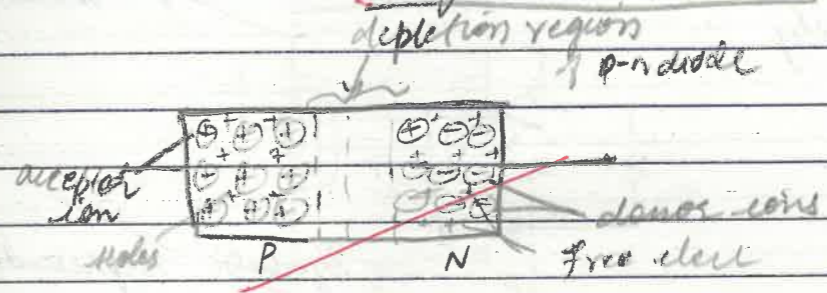 depletion region
p-n diode
acceptor
ion
holes
P
N
donor ions
free elect